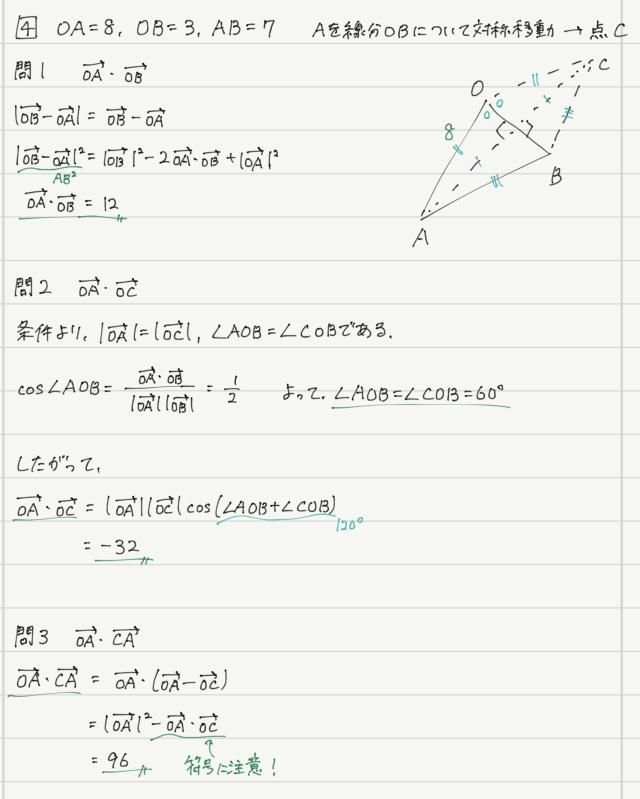 4 OA=8, OB=3, AB=7 Aを線分OBについて対称移動 → 点C
問1 OA・OB
|OB-OA| = OB-OA
|OB-OA|² = |OB|² - 2OA・OB + |OA|²
AB²
OA・OB = 12
O
C
8
B
A
問2 OA・OC
条件より, |OA|=|OC|, ∠AOB=∠COBである.
cos∠AOB = OA・OB / |OA||OB| = 1/2 よって, ∠AOB=∠COB=60°
したがって,
OA・OC = |OA||OC| cos(∠AOB+∠COB)
120°
= -32
問3 OA・CA
OA・CA = OA・(OA-OC)
= |OA|² - OA・OC
= 96 符号に注意!